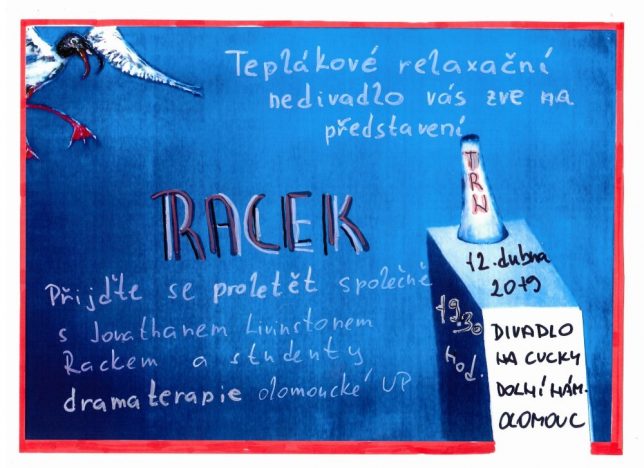 Teplákové relaxační
nedivadlo vás zve na
představení
TRN
RACEK
12. dubna
2019
19.30
hod.
Přijďte se proletět společně
s Jonathanem Livinstonem
Rackem a studenty
dramaterapie olomoucké UP
DIVADLO
NA CUCKY
DOLNÍ NÁM.
OLOMOUC